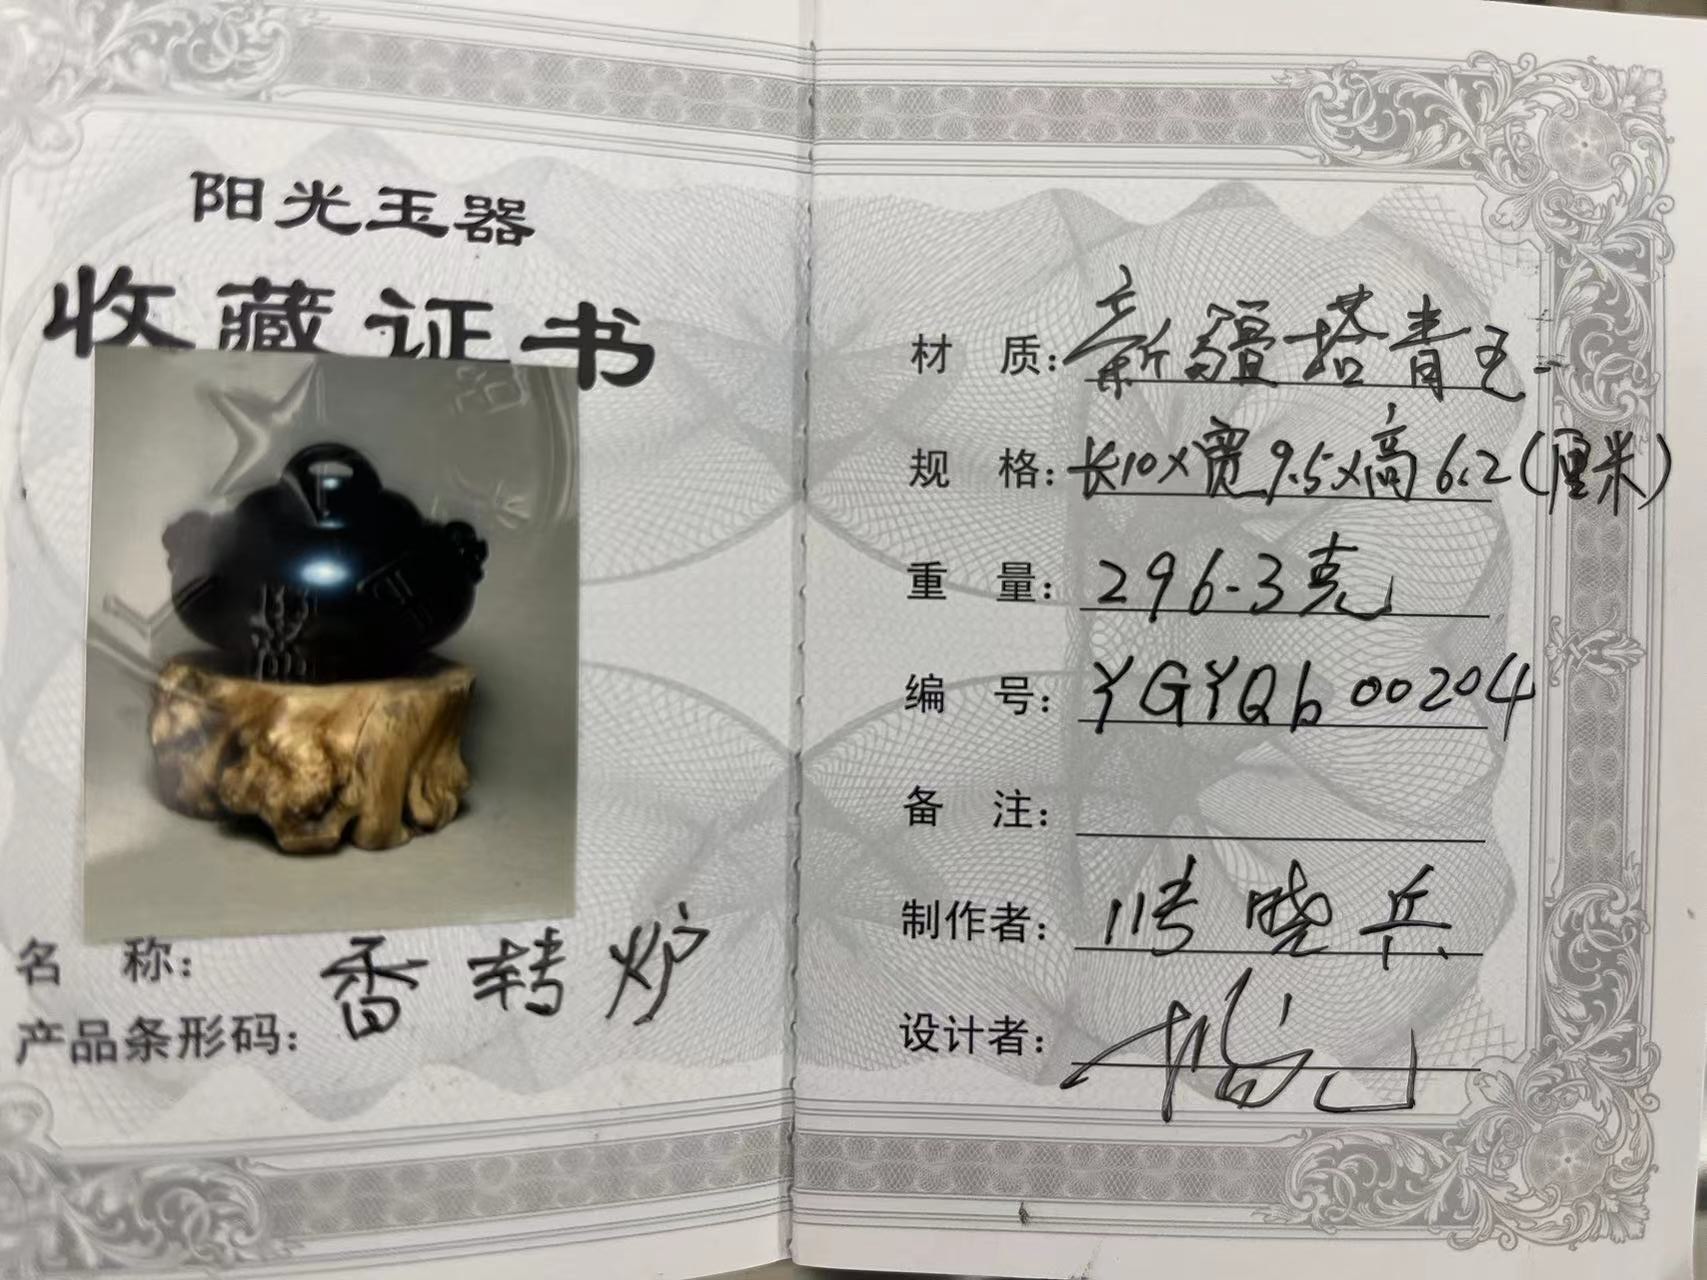 阳光玉器
收藏证书
名 称: 香转炉
产品条形码:
材 质: 新疆塔青玉
规 格: 长10×宽9.5×高6.2(厘米)
重 量: 296.3克
编 号: YGYQb00204
备 注:
制作者: 晓兵
设计者: